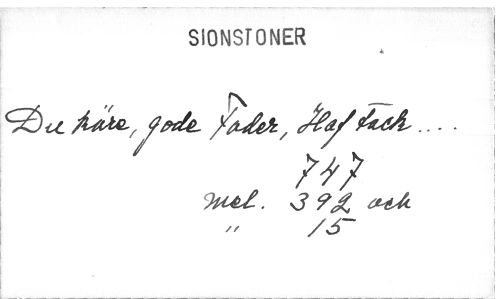 SIONSTONER
Du käre, gode Fader, Haf tack....
747
mel. 392 och
" 15